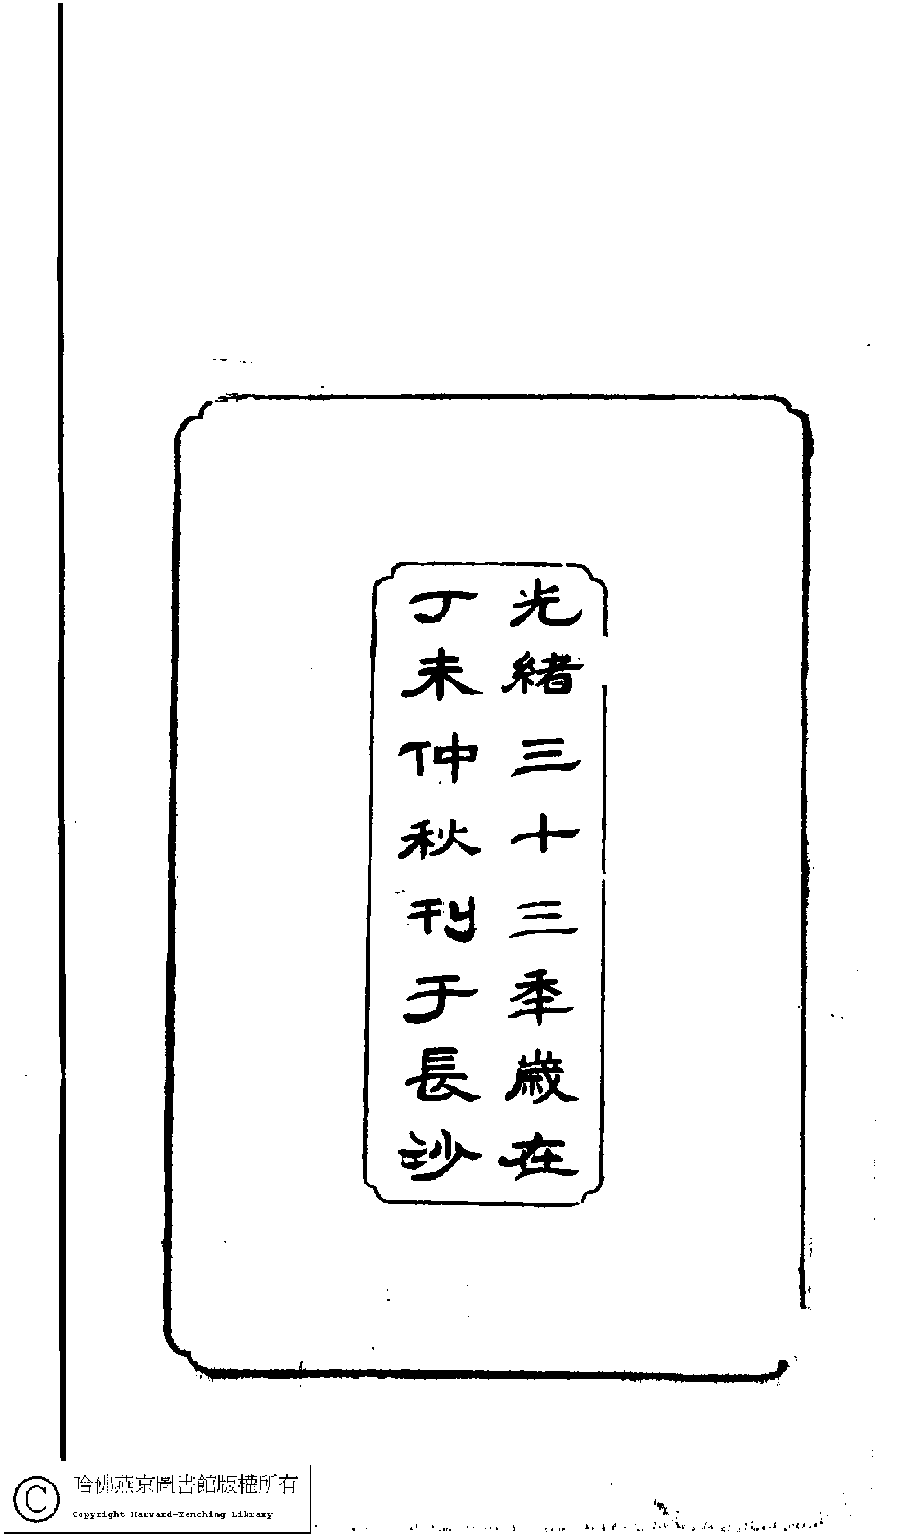 光緒三十三秊歲在
丁未仲秋刊于長沙
哈佛燕京圖書館版權所有
Copyright Harvard-Yenching Library